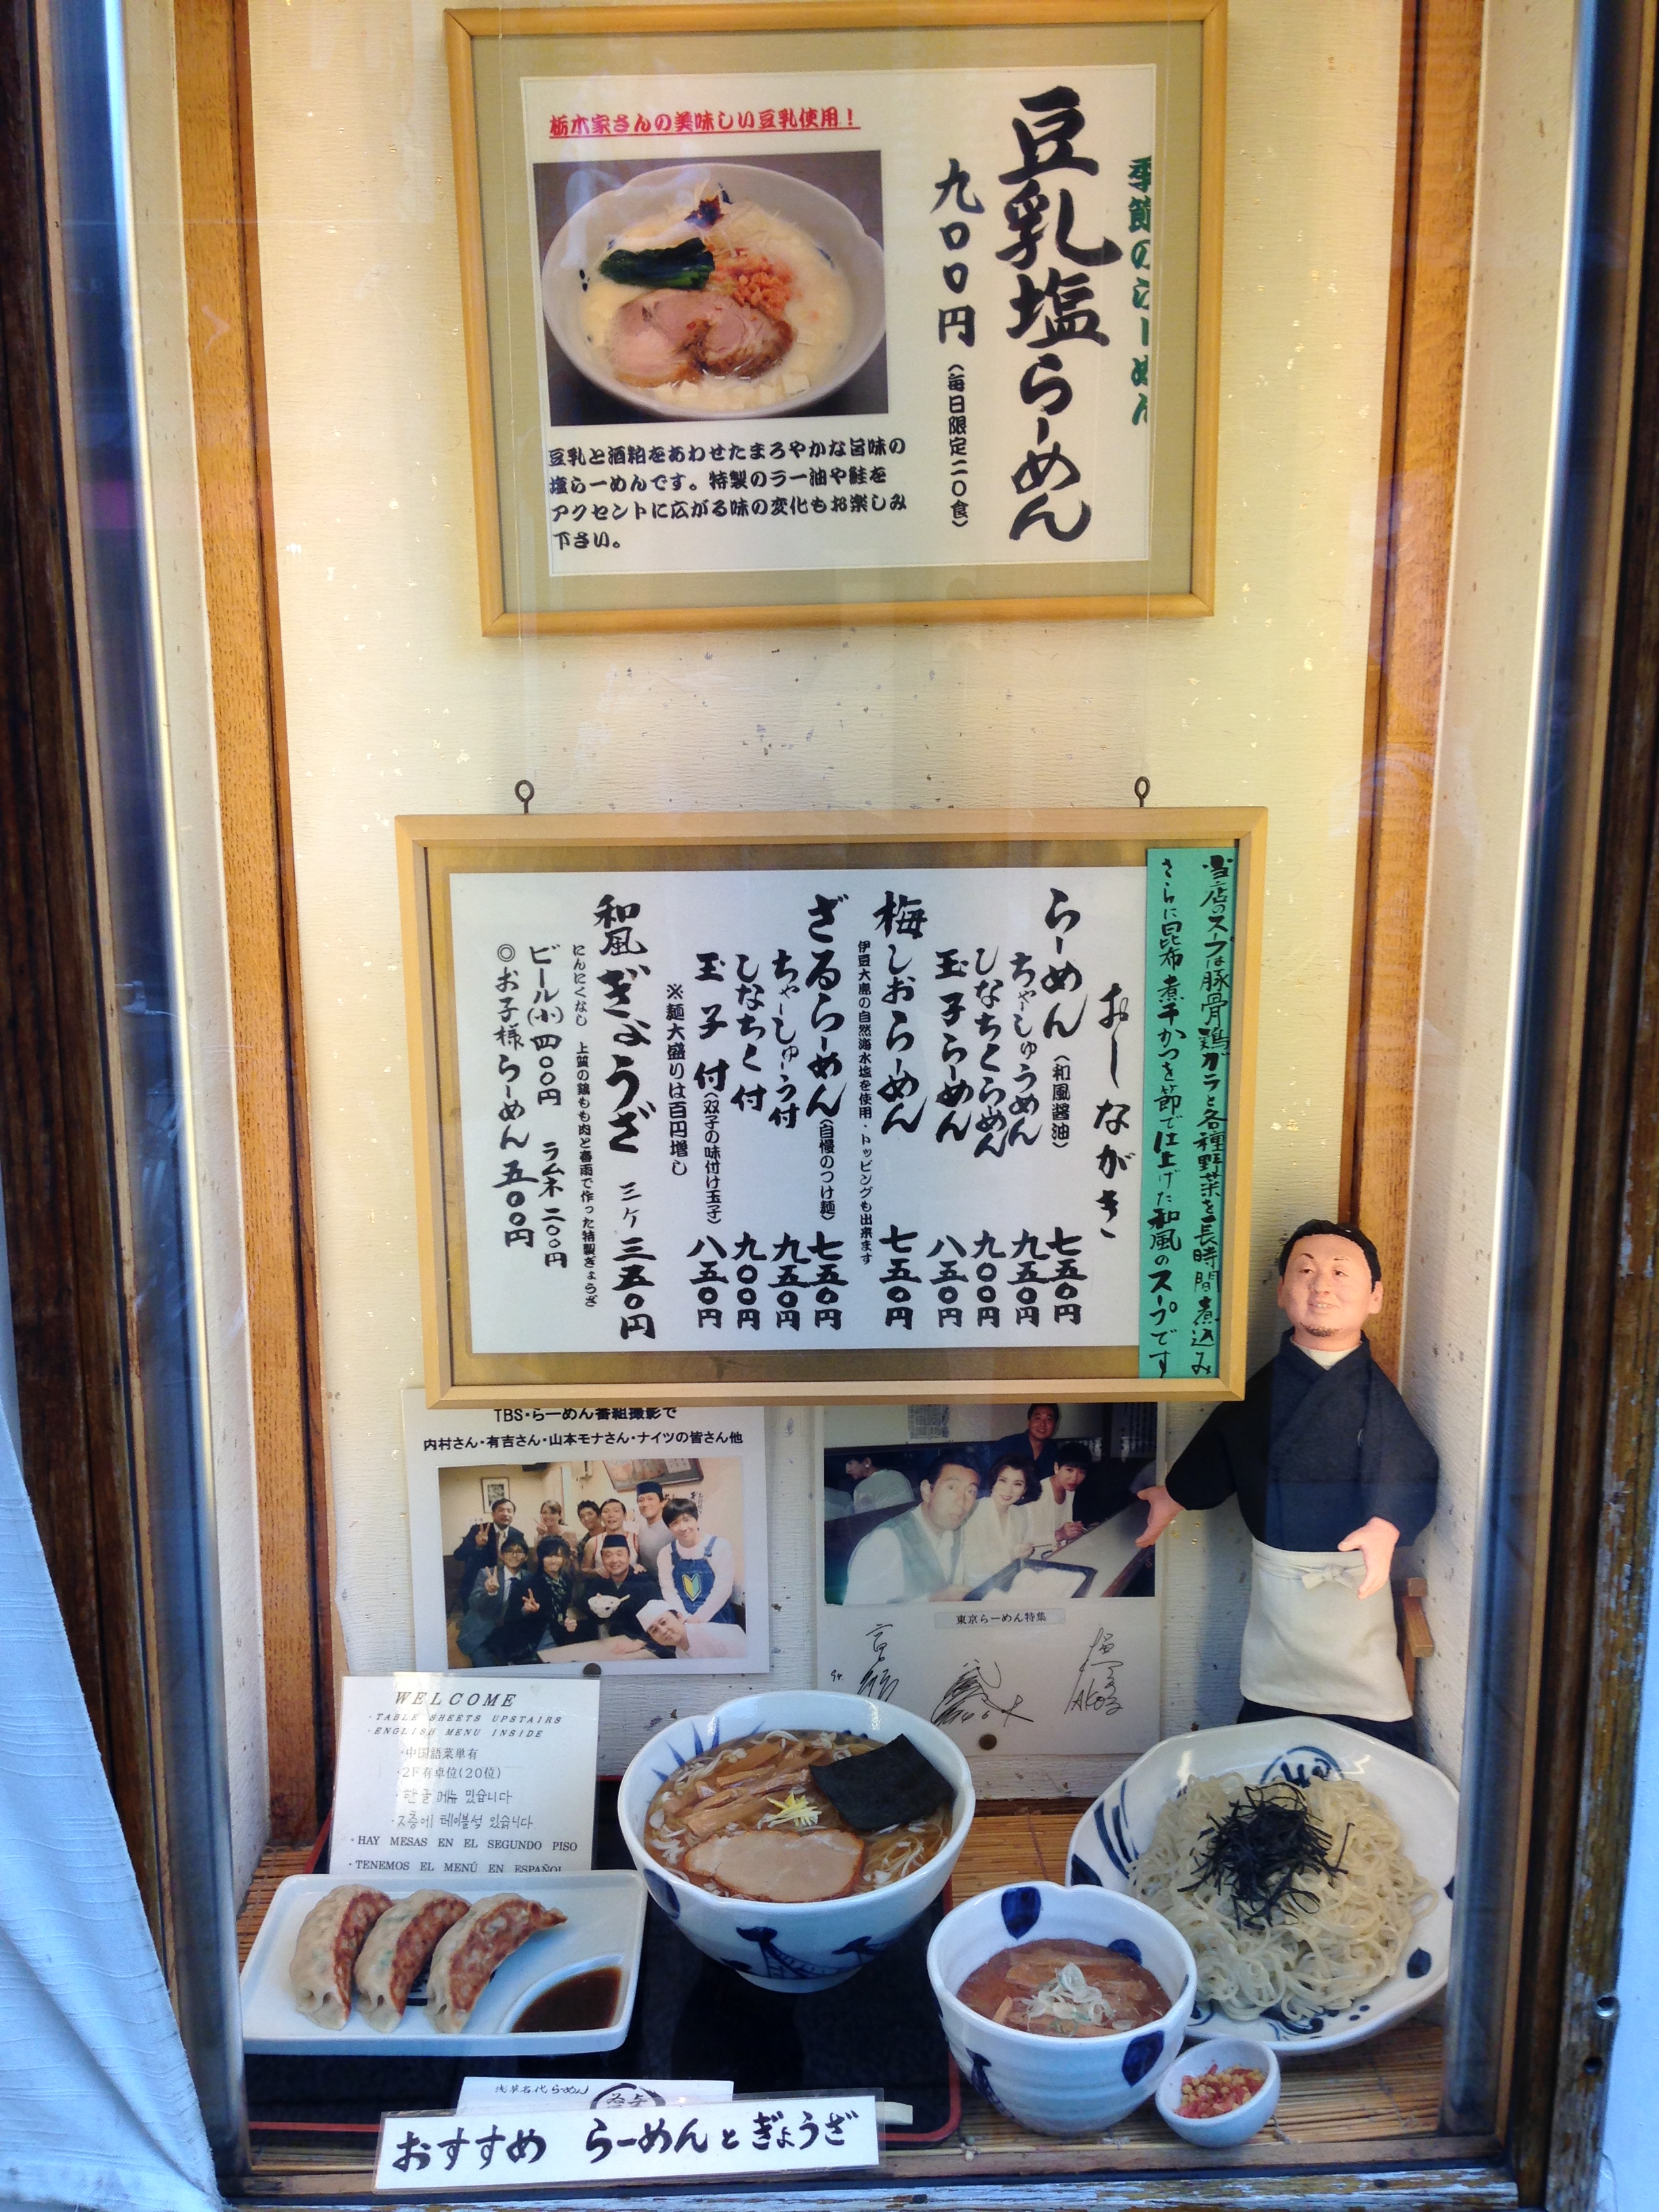 季節のらーめん
豆乳塩らーめん
九〇〇円
(毎日限定二〇食)
栃木家さんの美味しい豆乳使用！
豆乳と酒粕をあわせたまろやかな旨味の
塩らーめんです。特製のラー油や鮭を
アクセントに広がる味の変化もお楽しみ
下さい。
当店のスープは豚骨鶏ガラと各種野菜を長時間煮込み
さらに昆布煮干かつを節で仕上げた和風のスープです
おしながき
らーめん(和風醤油) 七五〇円
ちゃーしゅうめん 九五〇円
しなちくらーめん 九〇〇円
玉子らーめん 八五〇円
梅しおらーめん 七五〇円
伊豆大島の自然海水塩を使用・トッピングも出来ます
ざるらーめん(自慢のつけ麺) 七五〇円
ちゃーしゅーう付 九五〇円
しなちく付 九〇〇円
玉子付(双子の味付け玉子) 八五〇円
※麺大盛りは百円増し
和風ぎょうざ 三ヶ 三五〇円
にんにくなし 上質の鶏もも肉と春雨で作った特製ぎょうざ
ビール(小)四〇〇円 ラムネ 二〇〇円
◎お子様らーめん 五〇〇円
TBS・らーめん番組撮影で
内村さん・有吉さん・山本モナさん・ナイツの皆さん他
東京らーめん特集
WELCOME
・TABLE SHEETS UPSTAIRS
・ENGLISH MENU INSIDE
・中国語菜単有
・2F有卓位(20位)
・한글 메뉴 있습니다
・2층에 테이블석 있습니다
・HAY MESAS EN EL SEGUNDO PISO
・TENEMOS EL MENÚ EN ESPAÑOL
浅草名代らーめん
おすすめ らーめんとぎょうざ